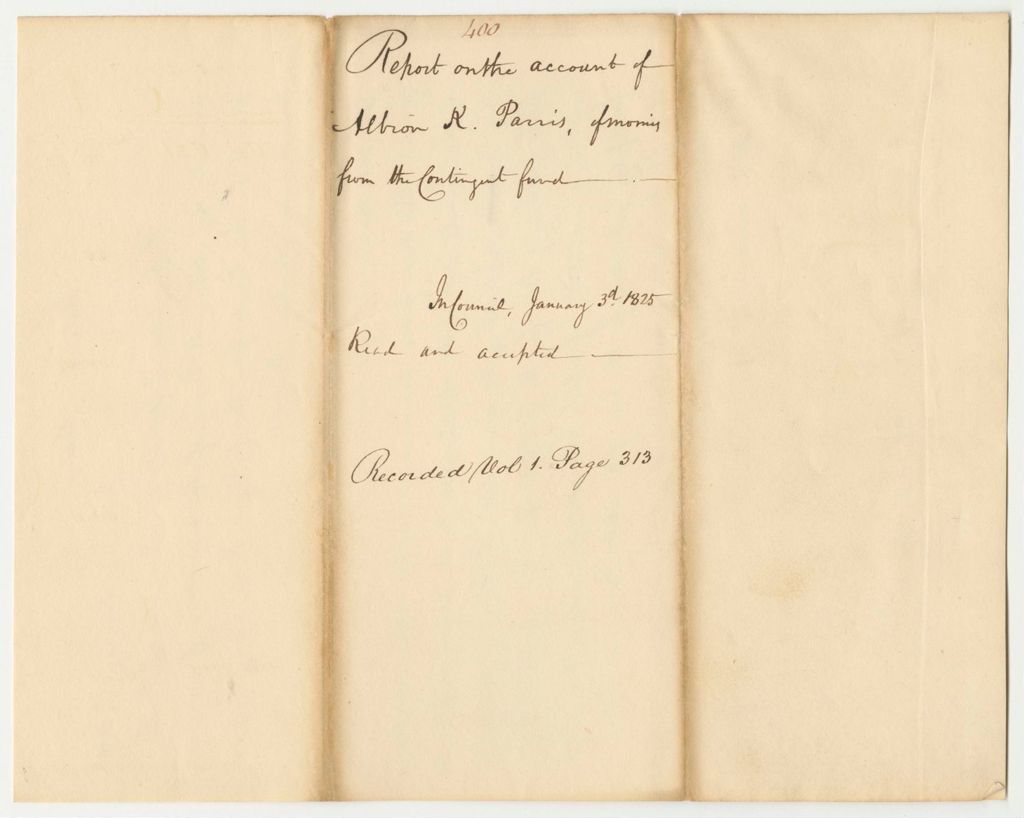 400
Report on the account of
Albion K. Parris, of monies
from the Contingent fund
In Council, January 3d. 1825
Read and accepted
Recorded Vol 1. Page 313